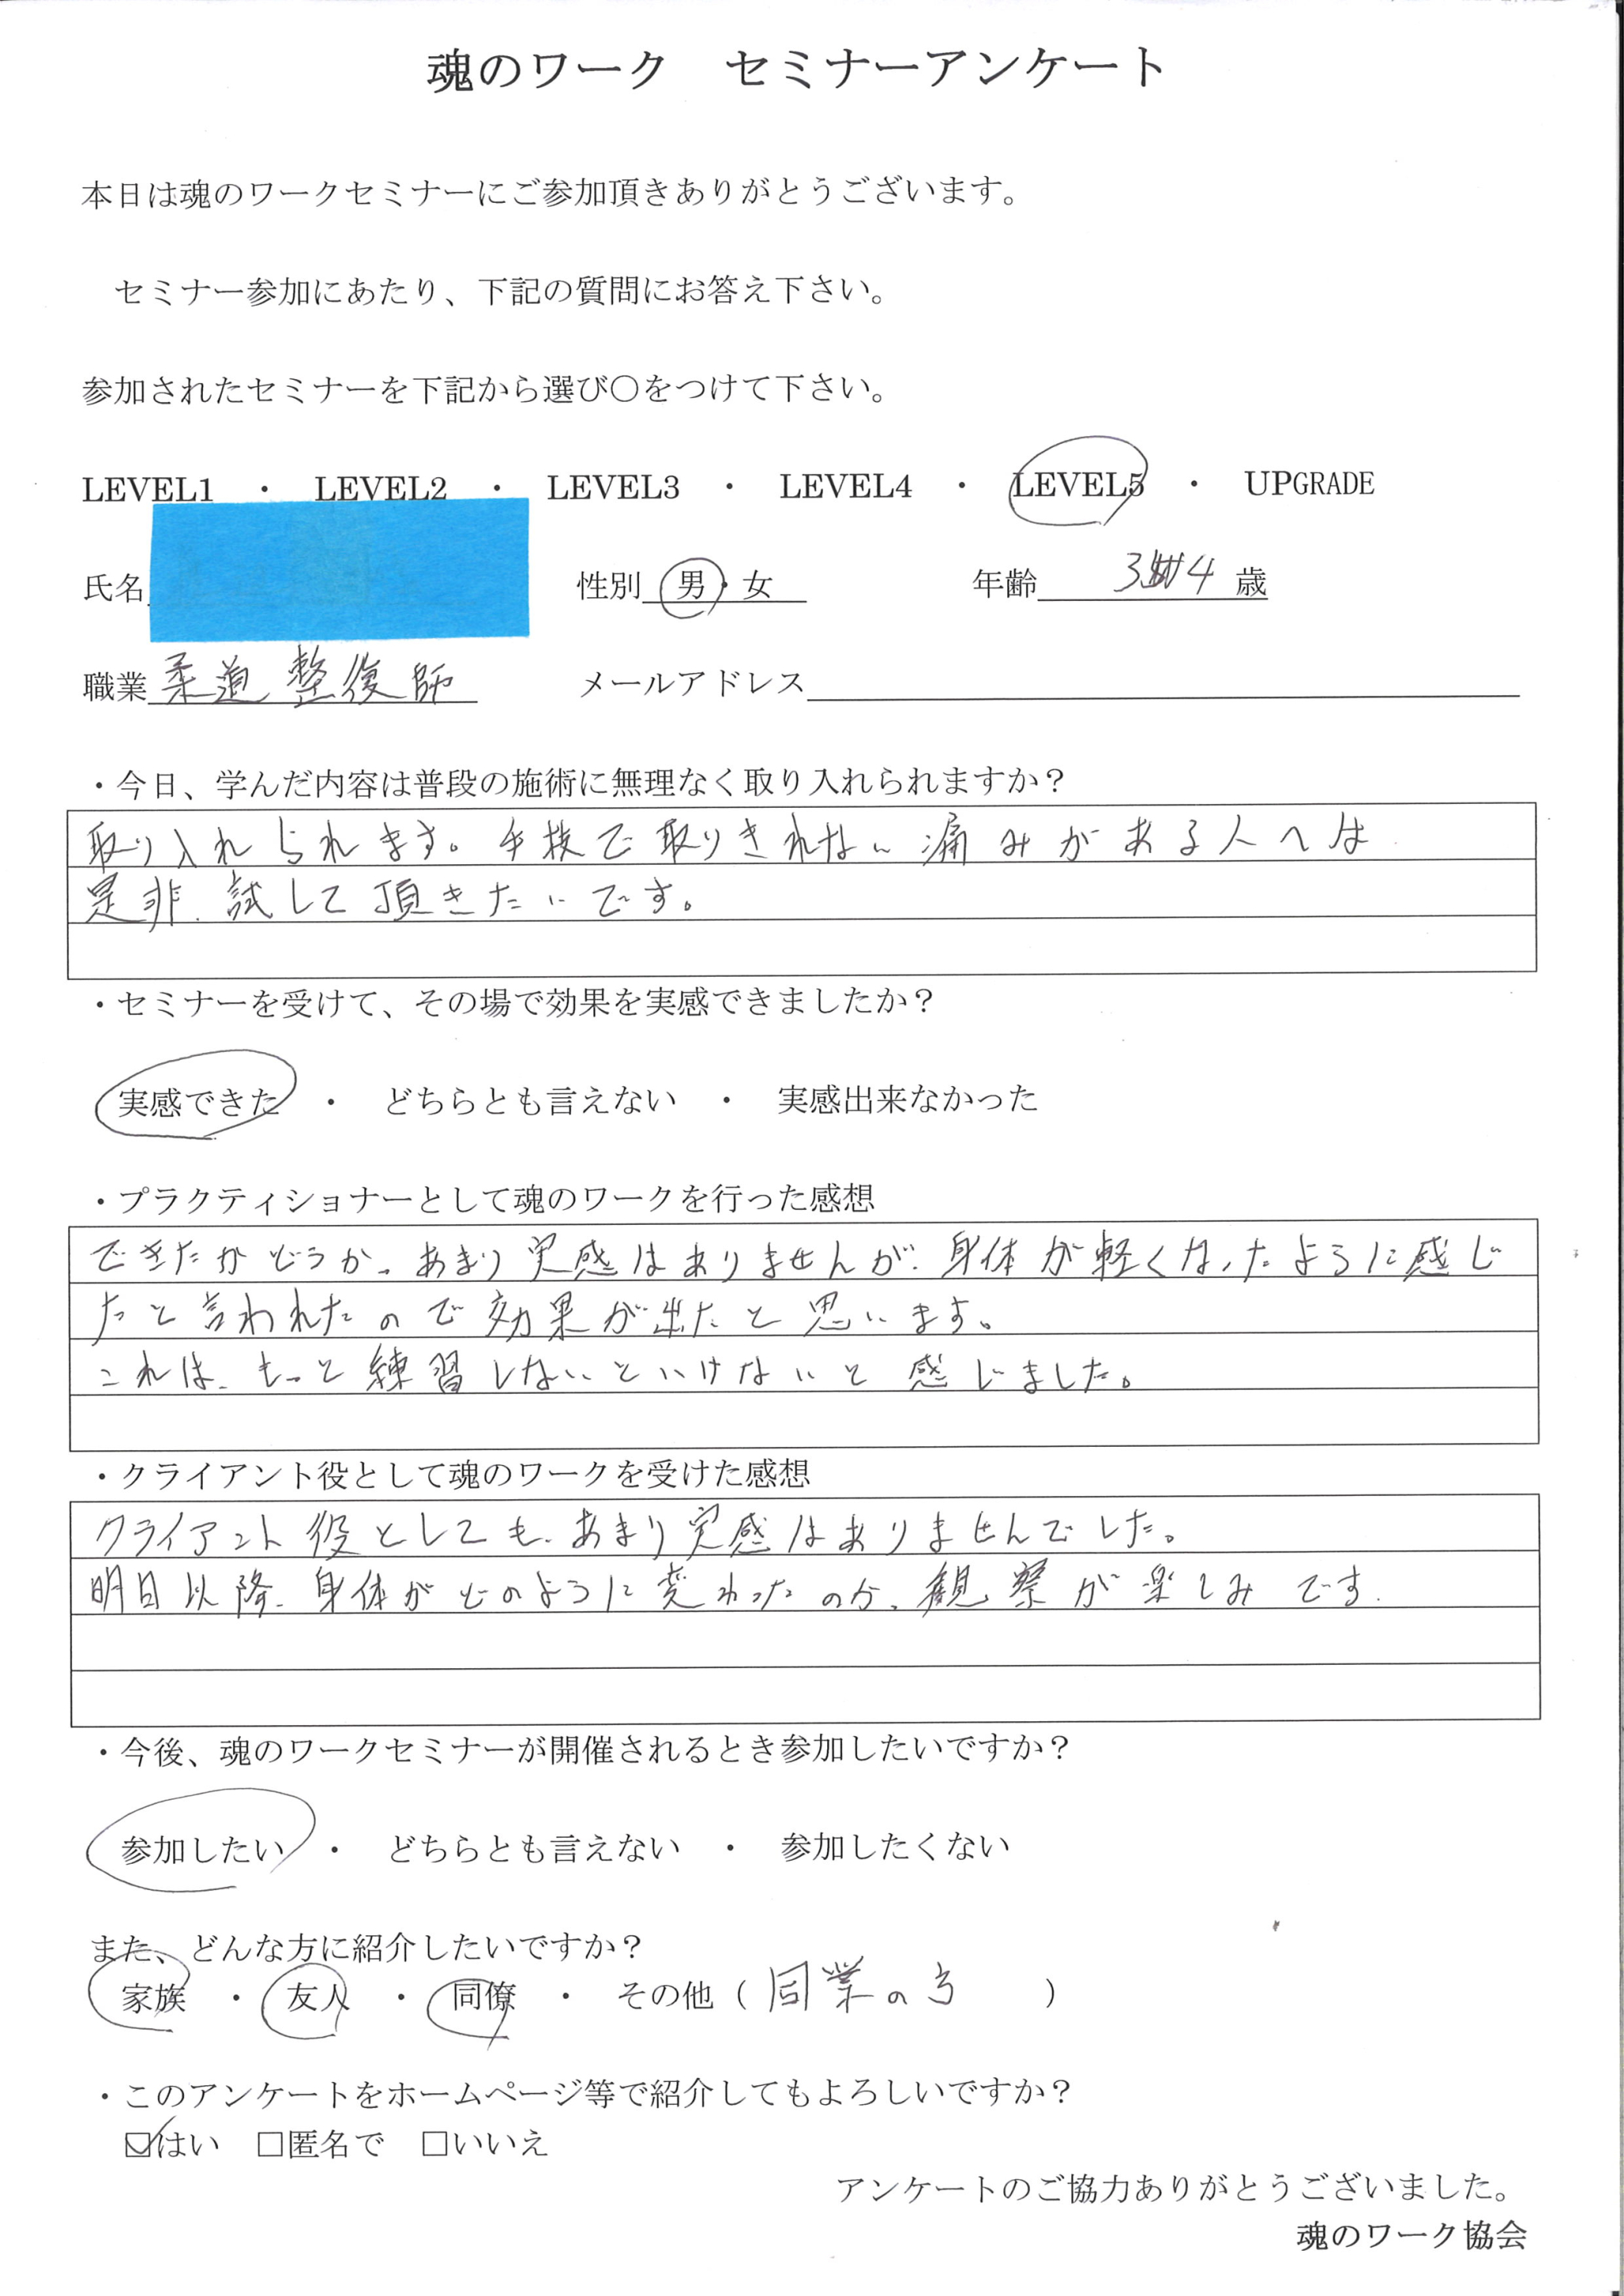 魂のワーク　セミナーアンケート
本日は魂のワークセミナーにご参加頂きありがとうございます。
セミナー参加にあたり、下記の質問にお答え下さい。
参加されたセミナーを下記から選び〇をつけて下さい。
LEVEL1　・　LEVEL2　・　LEVEL3　・　LEVEL4　・　LEVEL5　・　UPGRADE
氏名　性別　男・女　年齢　34　歳
職業 柔道整復師　メールアドレス
・今日、学んだ内容は普段の施術に無理なく取り入れられますか？
取り入れられます。手技で取りきれない痛みがある人へは
是非、試して頂きたいです。
・セミナーを受けて、その場で効果を実感できましたか？
実感できた　・　どちらとも言えない　・　実感出来なかった
・プラクティショナーとして魂のワークを行った感想
できたかどうか、あまり実感はありませんが、身体が軽くなったように感じ
たと言われたので効果が出たと思います。
これは、もっと練習しないといけないと感じました。
・クライアント役として魂のワークを受けた感想
クライアント役としても、あまり実感はありませんでした。
明日以降、身体がどのように変わったのか、観察が楽しみです.
・今後、魂のワークセミナーが開催されるとき参加したいですか？
参加したい　・　どちらとも言えない　・　参加したくない
また、どんな方に紹介したいですか？
家族　・　友人　・　同僚　・　その他（同業の方　）
・このアンケートをホームページ等で紹介してもよろしいですか？
☑はい　□匿名で　□いいえ
アンケートのご協力ありがとうございました。
魂のワーク協会